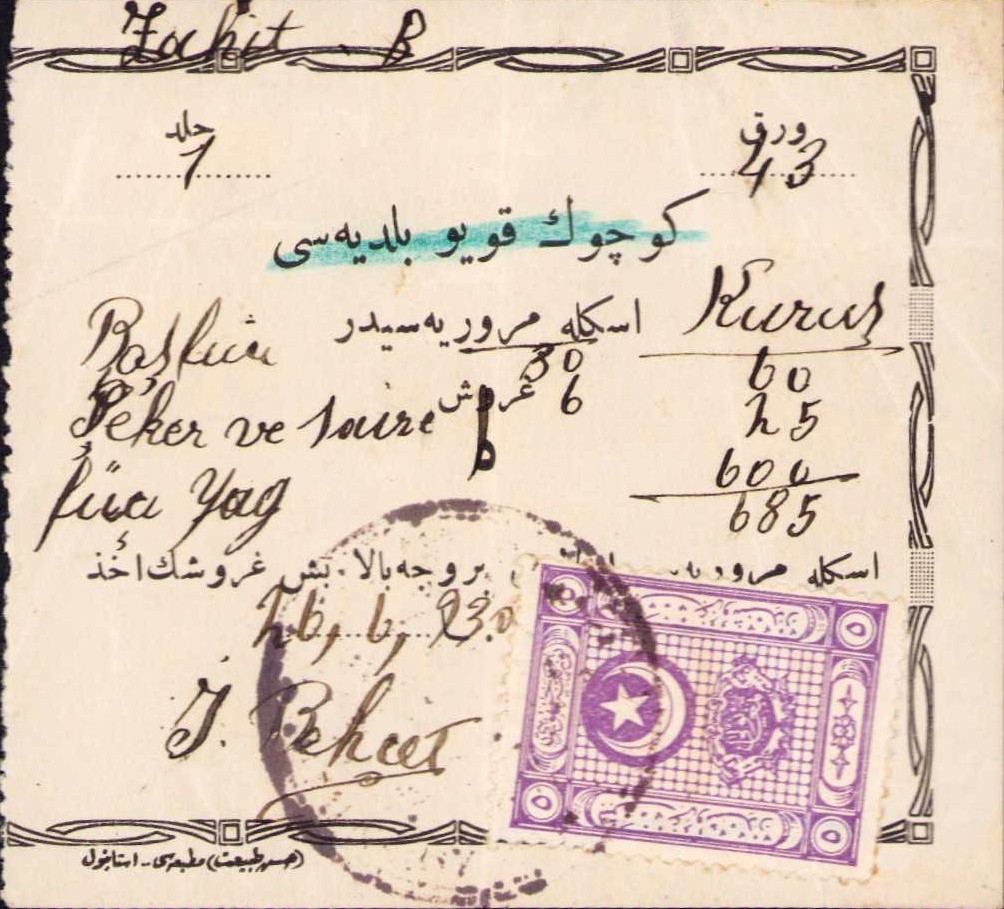 Zahit B
ورق 43
جلد 1
كوچوك قويو بلديه‌سى
Kuruş
اسكله مروريه‌سيدر
30
60
غروش 6
Peker ve saire
25
Yag
600
685
اسكله بروجه بالا بش غروشك اخذ
26, 6, 930
Behcet
٥
٥
٥
٥
مطبعه‌سى - استانبول